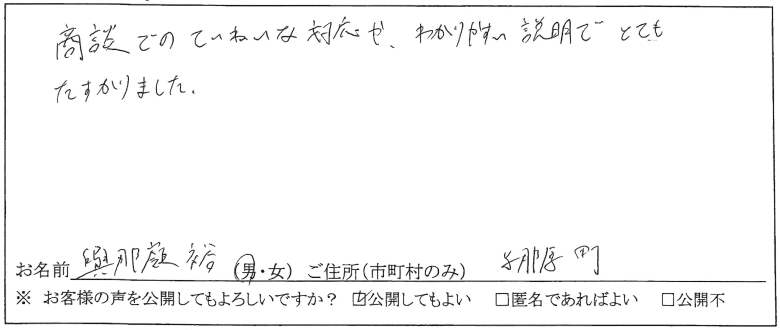 商談でのていねいな対応や、わかりやすい説明でとても
たすかりました。
お名前 與那嶺 裕 (男・女) ご住所(市町村のみ) 与那原町
※ お客様の声を公開してもよろしいですか? ☑公開してもよい □匿名であればよい □公開不